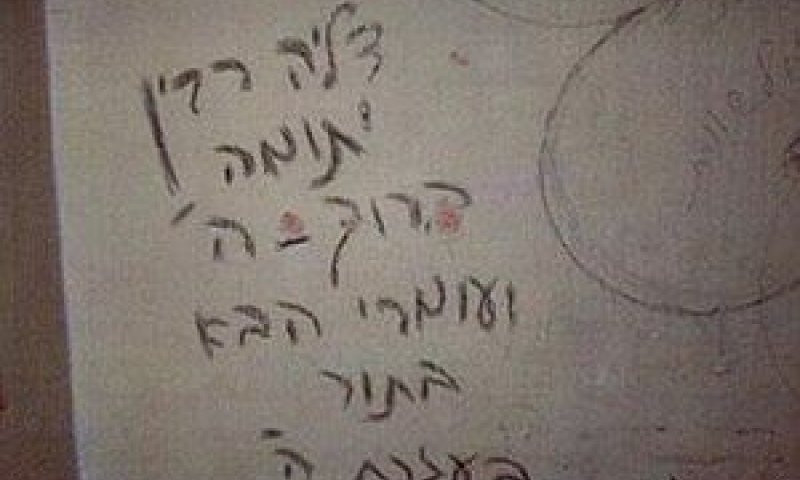 דליה רבין
יתומה
ברוך - ה'
ועומרי הבא
בתור
בעזרת ה'